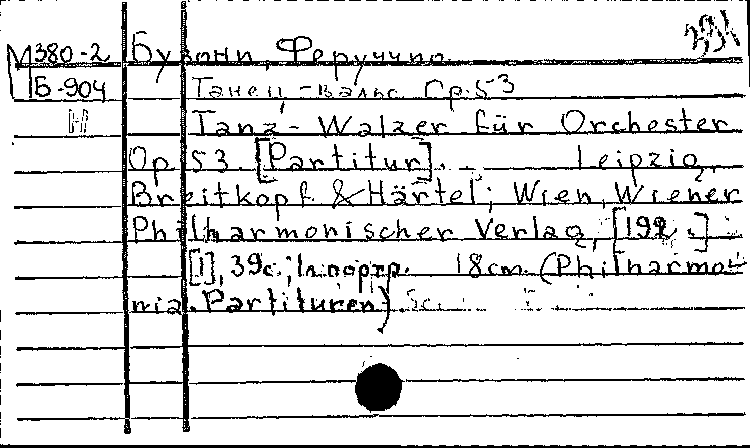 М380-2 Бузони, Феруччио
Б-904 Танец-вальс Ор.53
Н Tanz-Walzer für Orchester
Op. 53. [Partitur]. Leipzig,
Breitkopf & Härtel; Wien, Wiener
Philharmonischer Verlag, [192.]
[1], 39с.; 1л.портр. 18cm. (Philharmo-
nia. Partituren)